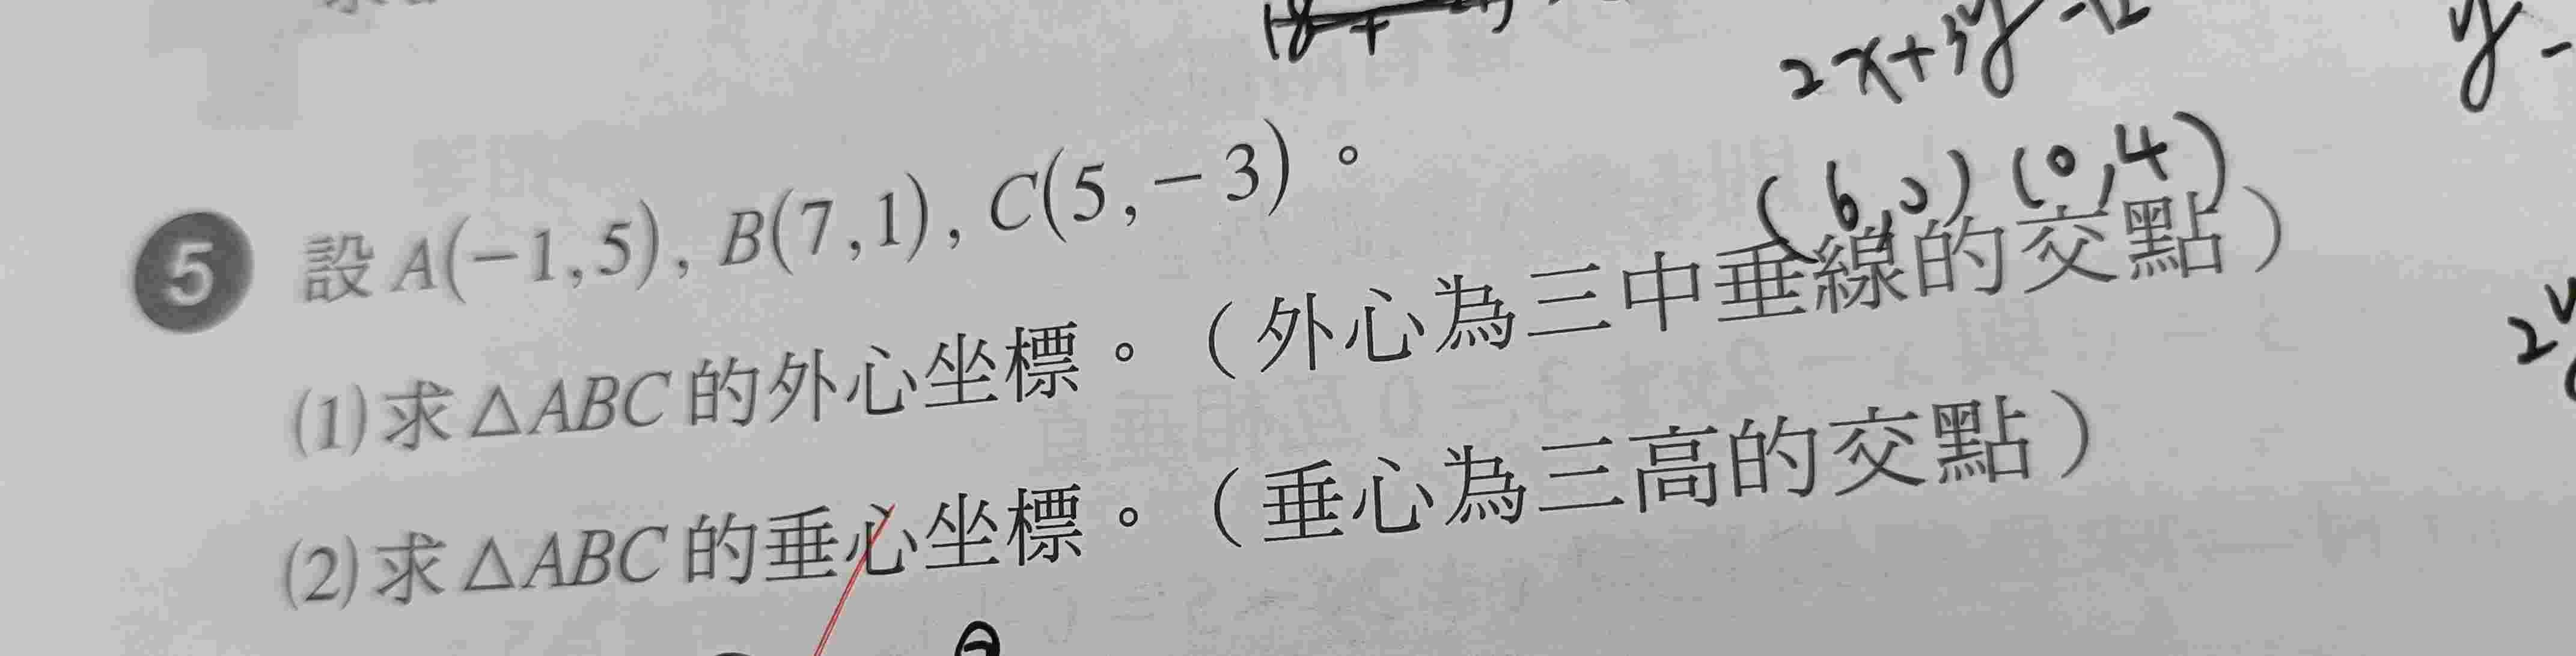 2x+3y-12
y-
(6,0) (0,4)
5 設 A(-1,5), B(7,1), C(5,-3)。
(1)求△ABC的外心坐標。（外心為三中垂線的交點）
(2)求△ABC的垂心坐標。（垂心為三高的交點）